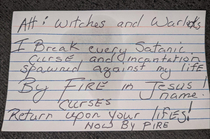 Att: Witches and Warlocks
I Break every Satanic
curse and incantation
spawned against my life
By FIRE in Jesus name!
curses
Return upon your lifes!
NOW BY FIRE